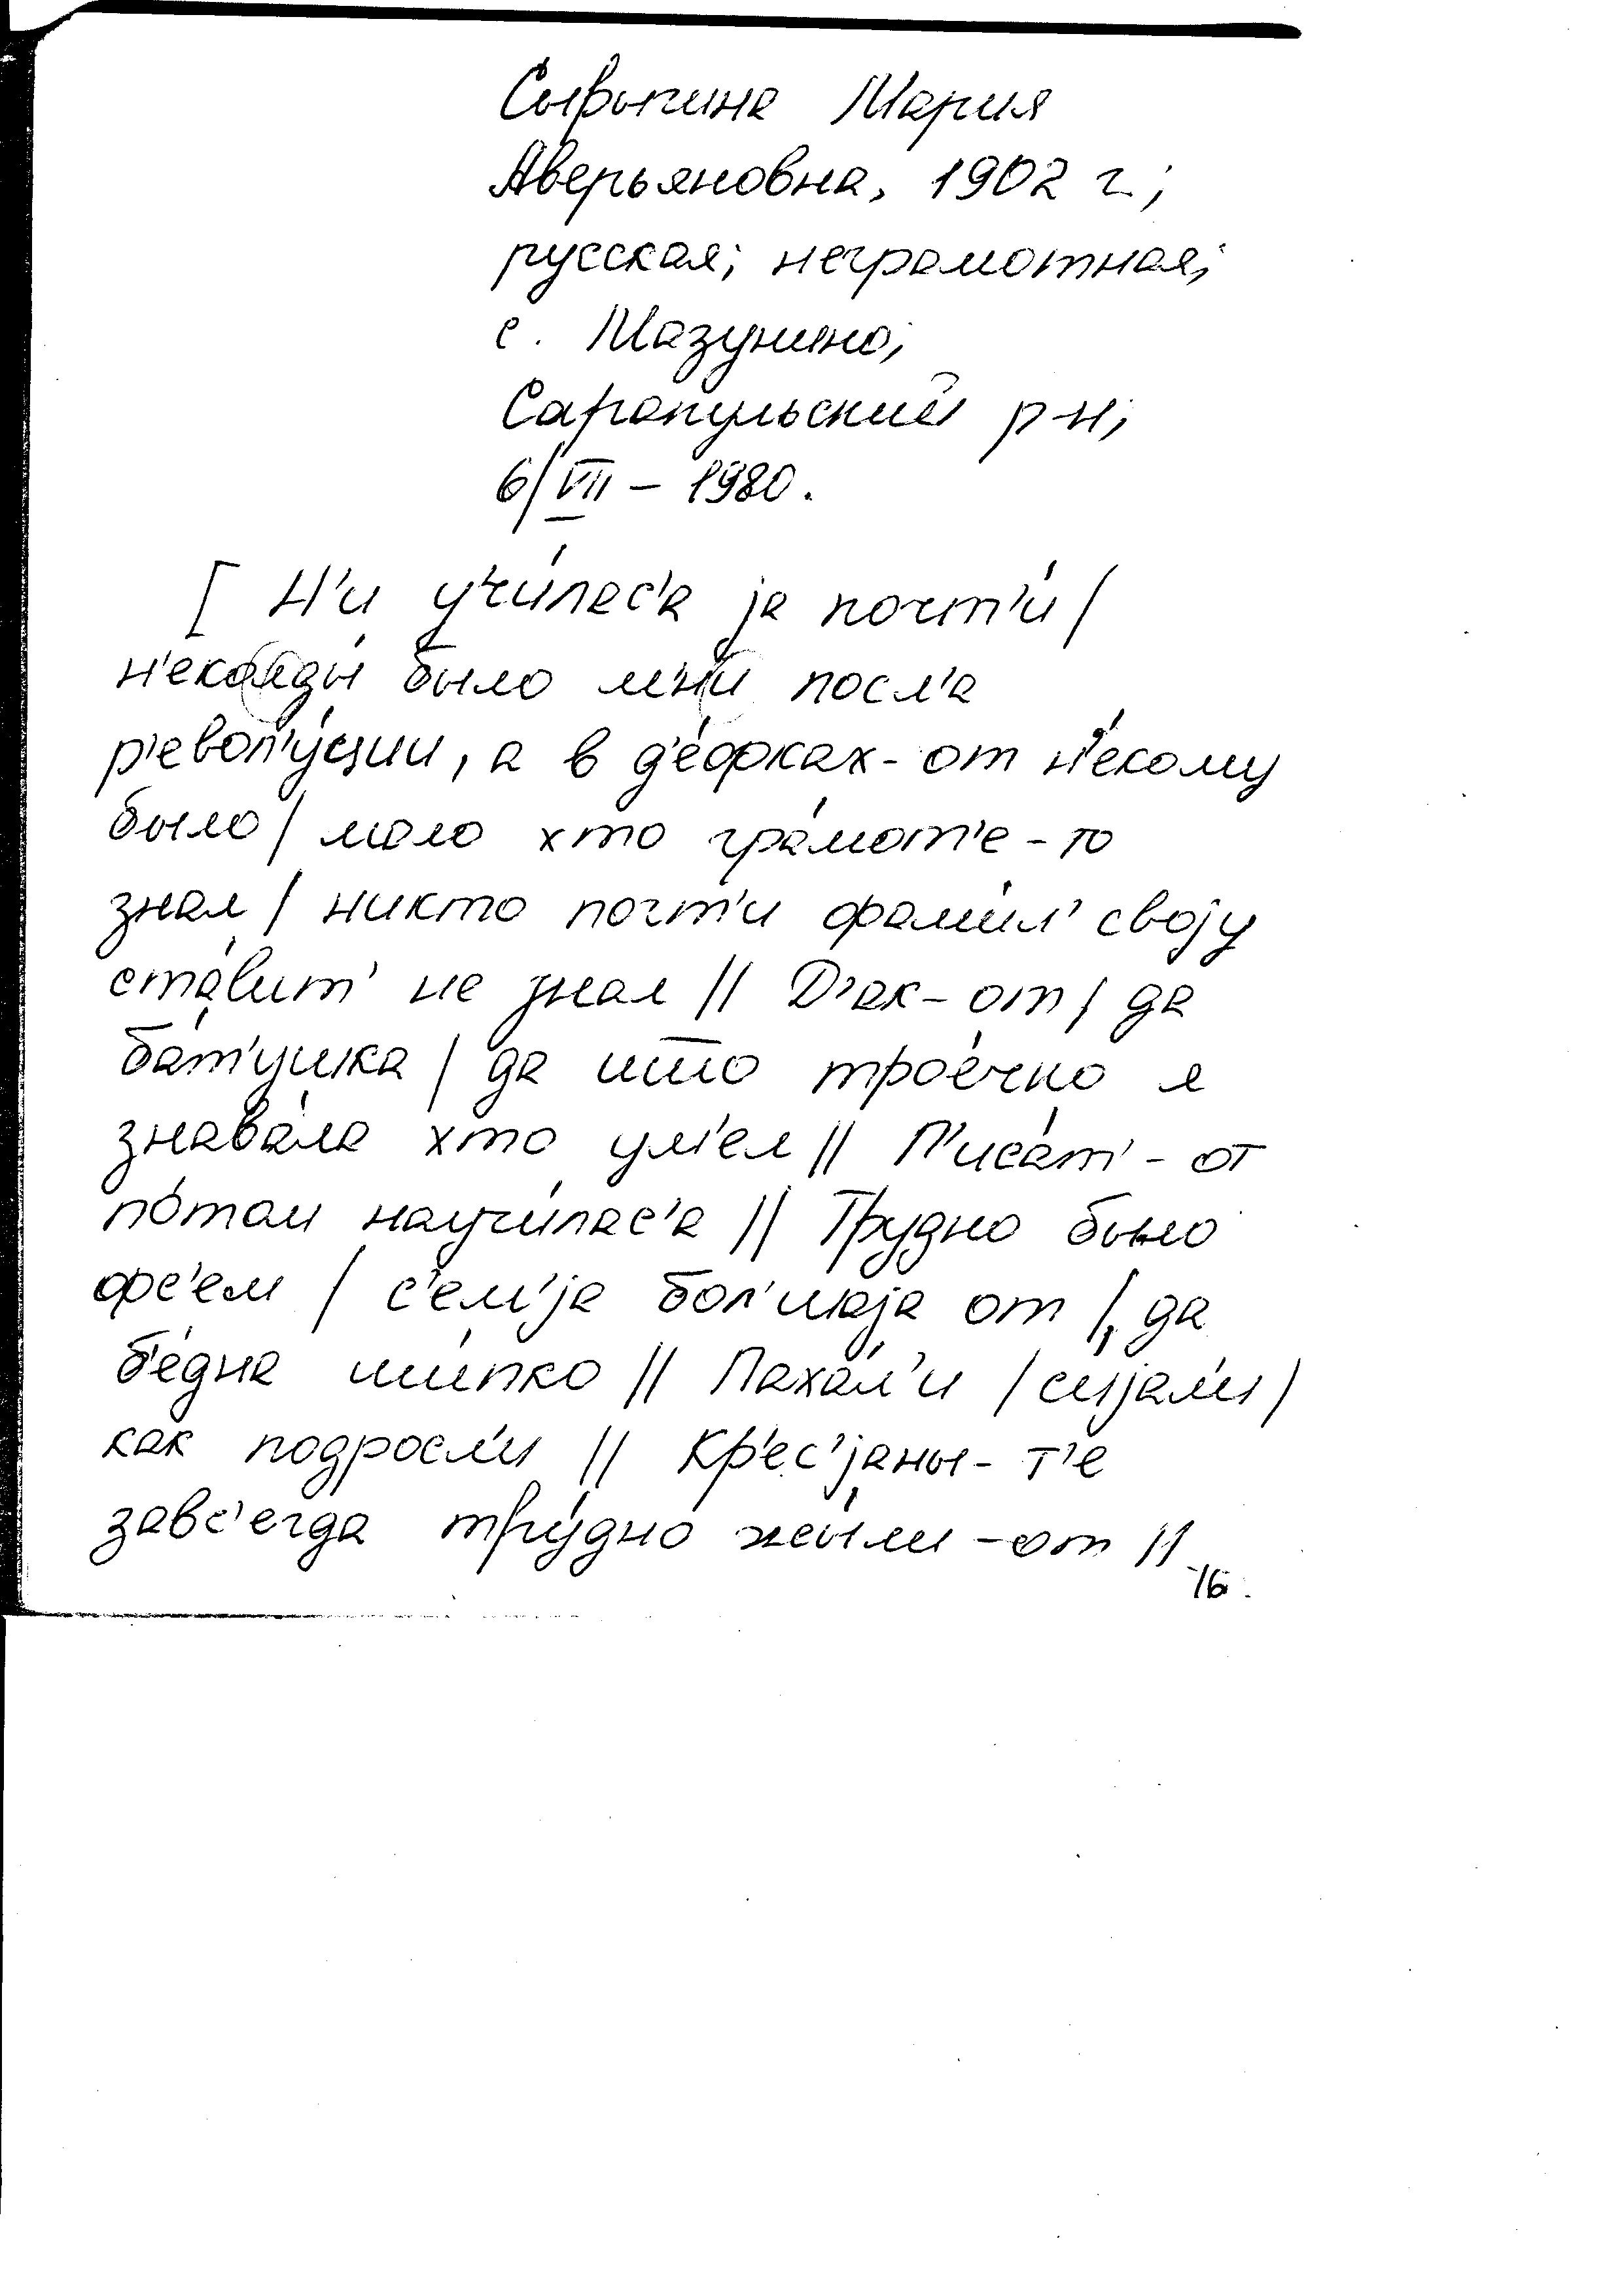 Сыврыгина Мария
Аверьяновна, 1902 г.;
русская; неграмотная;
с. Мазунино;
Сарапульский р-н;
6/VII – 1980.
[ Н'и учи́лас'а jа почт'и́ /
н'екал́ды было мн'и посл'а
р'евол'у́ции, а в д'е́фках-от н'е́кому
было / мало хто гра́мот'е-то
знал / никто почт'и фами́л' своjу
ста́вит' не знал // Д'ак-от / да
ба́т'ушка / да што трое́чко я
знава́ла хто ум'ел // П'иса́т'-от
по́том научи́лас'а // Трудно было
фс'ем / с'ем'jа бол'шаjа от /, да
б'е́дна ши́пко // Паха́л'и / сиjал'и /
как подросл'и // Кр'ес'jаны-т'е
завс'егда тру́дно жы́ли-от //
16.